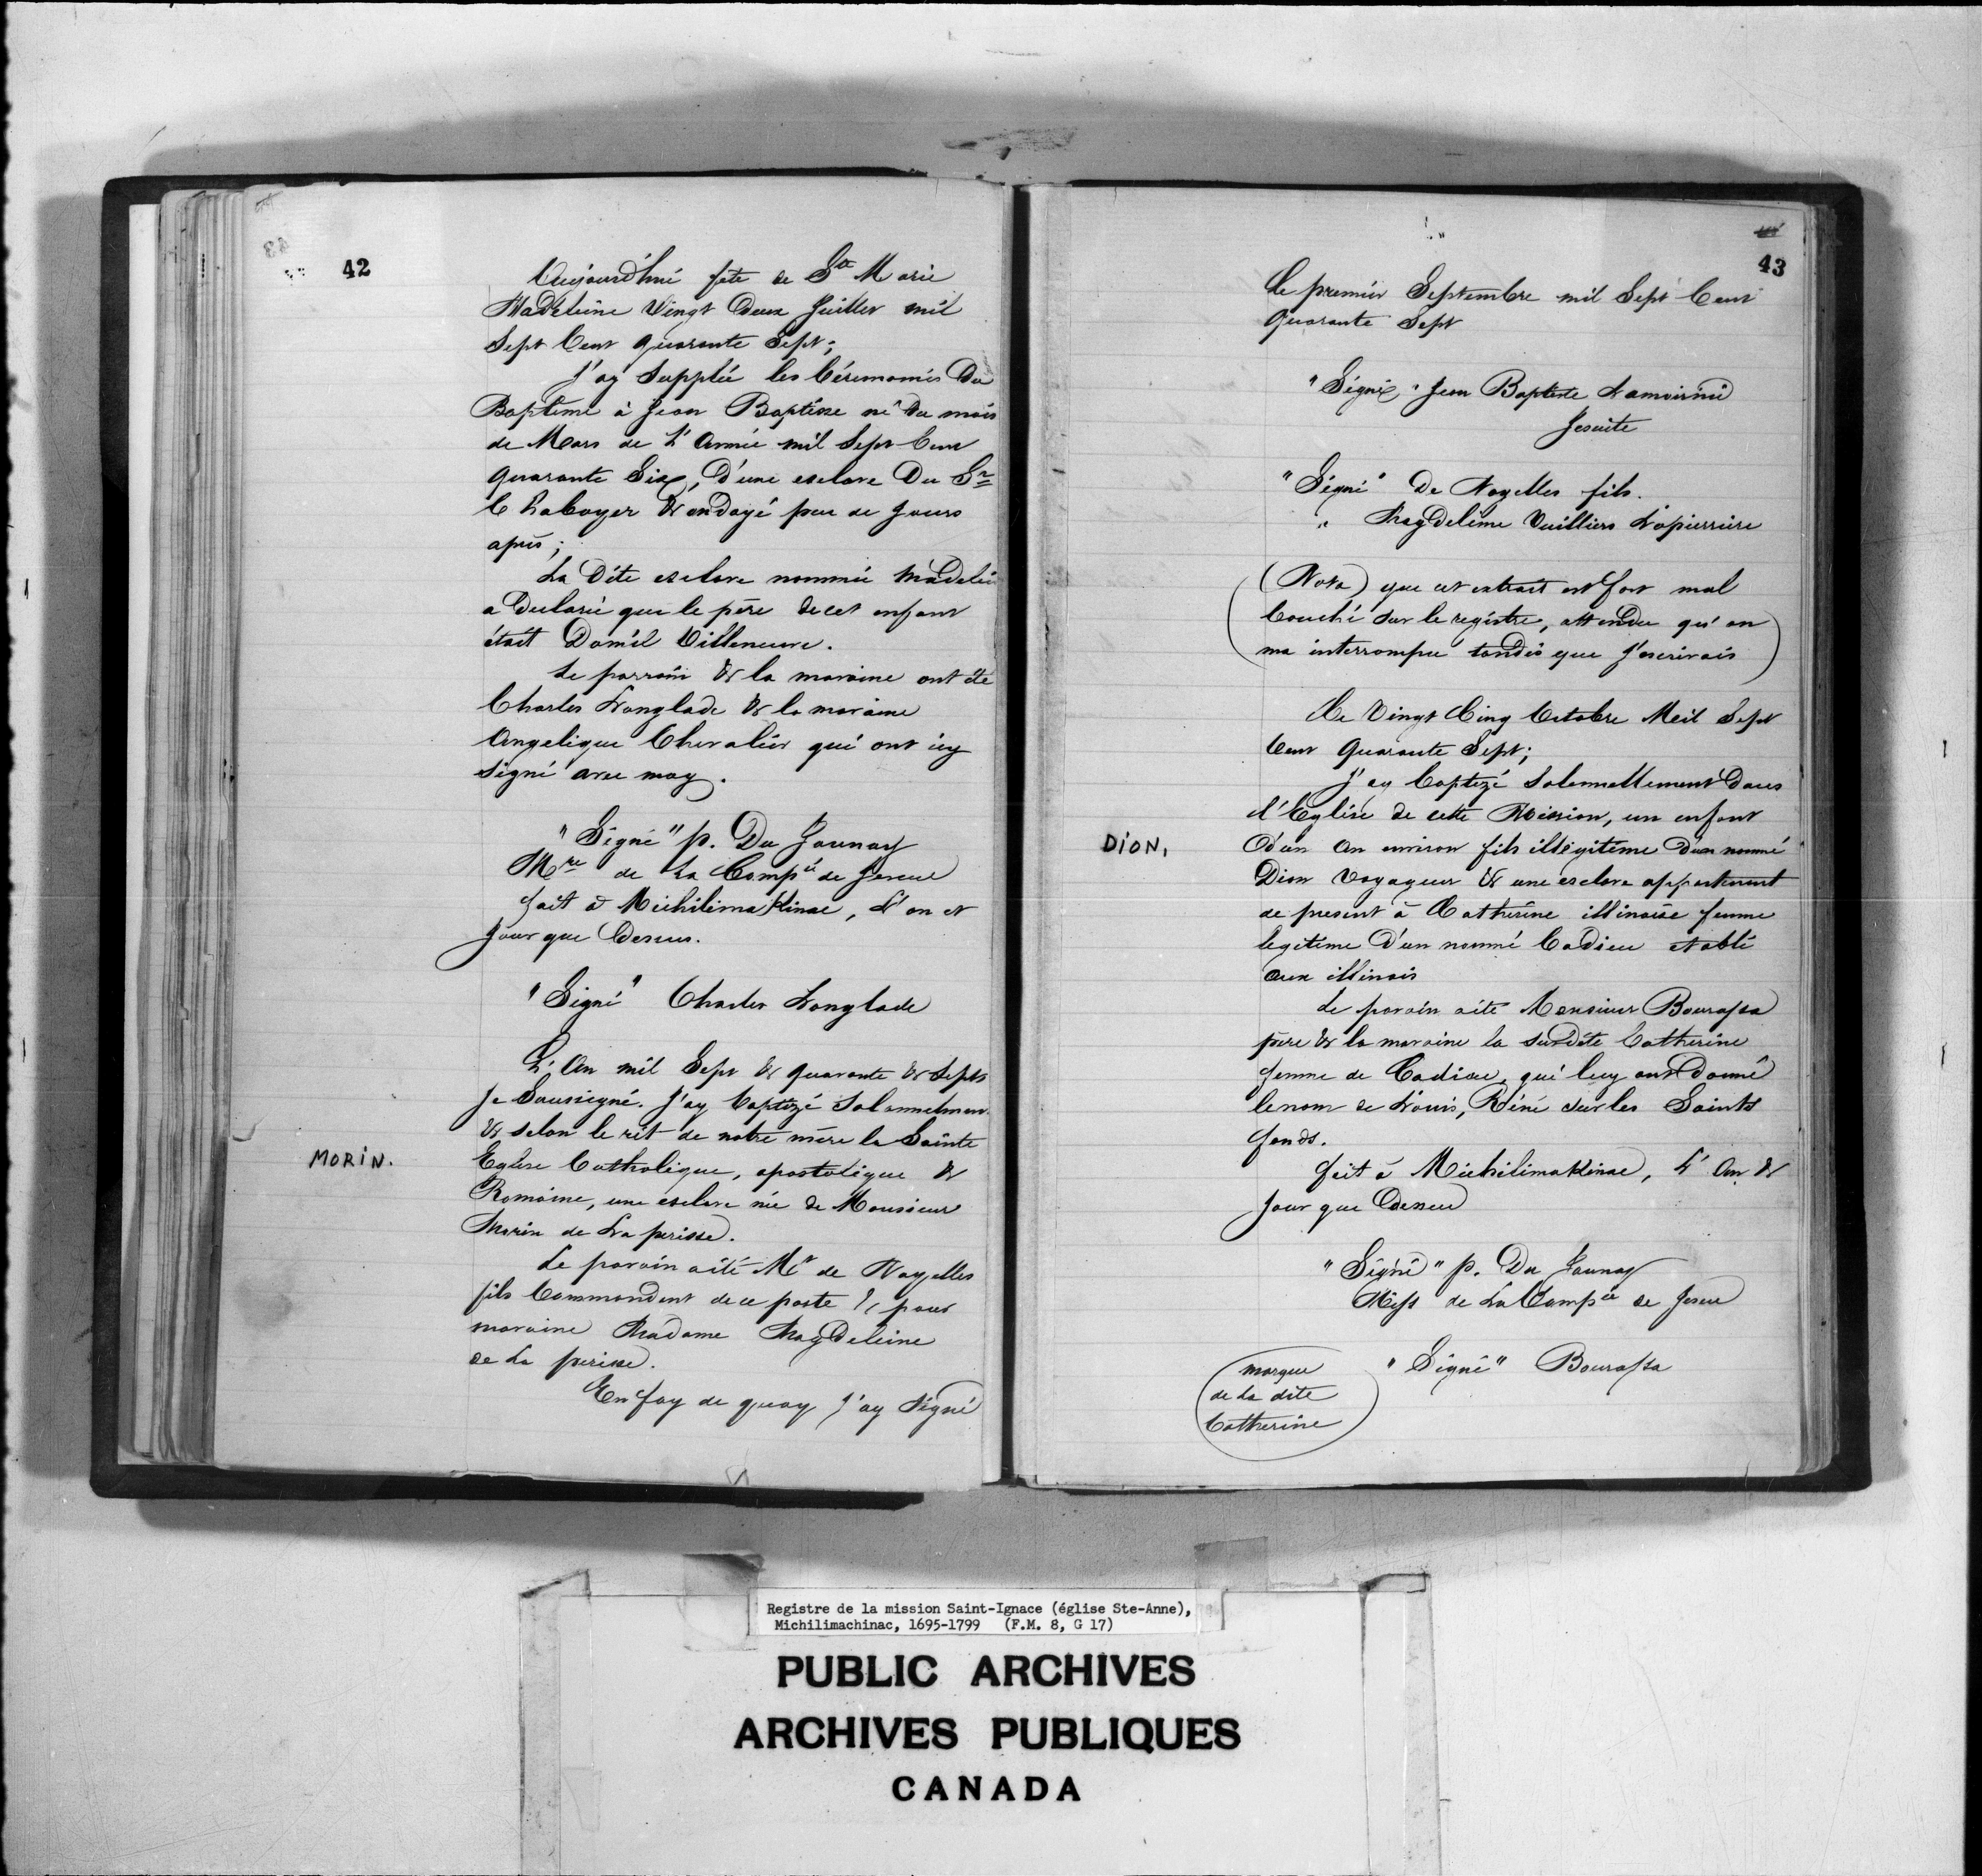 42
Aujourd'hui fete de Ste Marie
Madeleine Vingt Deux Juillet mil
Sept Cent quarante Sept;
J'ay Supplée les Cérémonies Du
Baptême à Jean Baptiste né Du mois
de Mars de L'Année mil Sept Cent
quarante Six, D'une esclave Du Sr
Chaboyer & ondoyé peu de Jours
après;
La Dite esclave nommée Madelei
a Declaré que le père de cet enfant
était Daniel Villeneuve.
Le parrain & la maraine ont été
Charles Langlade & la maraine
Angelique Chevalier qui ont icy
signé avec moy.
"Signé" p. Du Jaunay
Mre de La Compie de Jesus
fait à Michilimakinac, L'an et
Jour que Dessus.
"Signé" Charles Langlade
MORIN.
L'An mil Sept & quarante & Sept
Je Soussigné. J'ay baptizé Solennelmen
& selon le rit de notre mère la Sainte
Eglise Catholique, apostolique &
Romaine, une esclave née de Monsieur
Morin de La perisse.
Le parain a été Mr de Noyelles
fils Commandant de ce poste & pour
maraine Madame Magdeleine
de La perisse.
En foy de quoy J'ay Signé
43
Le premier Septembre mil Sept Cent
quarante Sept
"Signé" Jean Baptiste Lamoirnie
Jesuite
"Signé" De Noyelles fils.
" Magdeleine Villiers Lapierriere
(Nota) que cet extrait est fort mal
Couché sur le registre, attendu qu'on
ma interrompu tandis que J'escrivais
Le Vingt Cinq Octobre Mil Sept
Cent Quarante Sept;
J'ay baptizé Solennellement Dans
l'Eglise de cette Mission, un enfant
DION,
D'un An environ fils illégitime D'un nommé
Dion Voyageur & une esclave appartenant
de present à Catherine illinoise femme
legitime D'un nommé Cadieu etabli
aux illinois
Le parain a été Monsieur Bourassa
père & la maraine la Susdite Catherine
femme de Cadieu, qui luy ont Donné
le nom de Louis, Réné sur les Saints
fonds.
fait à Michilimakinac, L'An &
Jour que Dessus
"Signé" p. Du Jaunay
Miss de La Compie de Jesus
"Signé" Bourassa
marque
de La dite
Catherine
Registre de la mission Saint-Ignace (église Ste-Anne),
Michilimachinac, 1695-1799 (F.M. 8, G 17)
PUBLIC ARCHIVES
ARCHIVES PUBLIQUES
CANADA